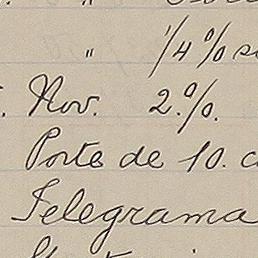 "
" 1/4 %
Nov. 2.%.
Porte de 10.
Telegrama